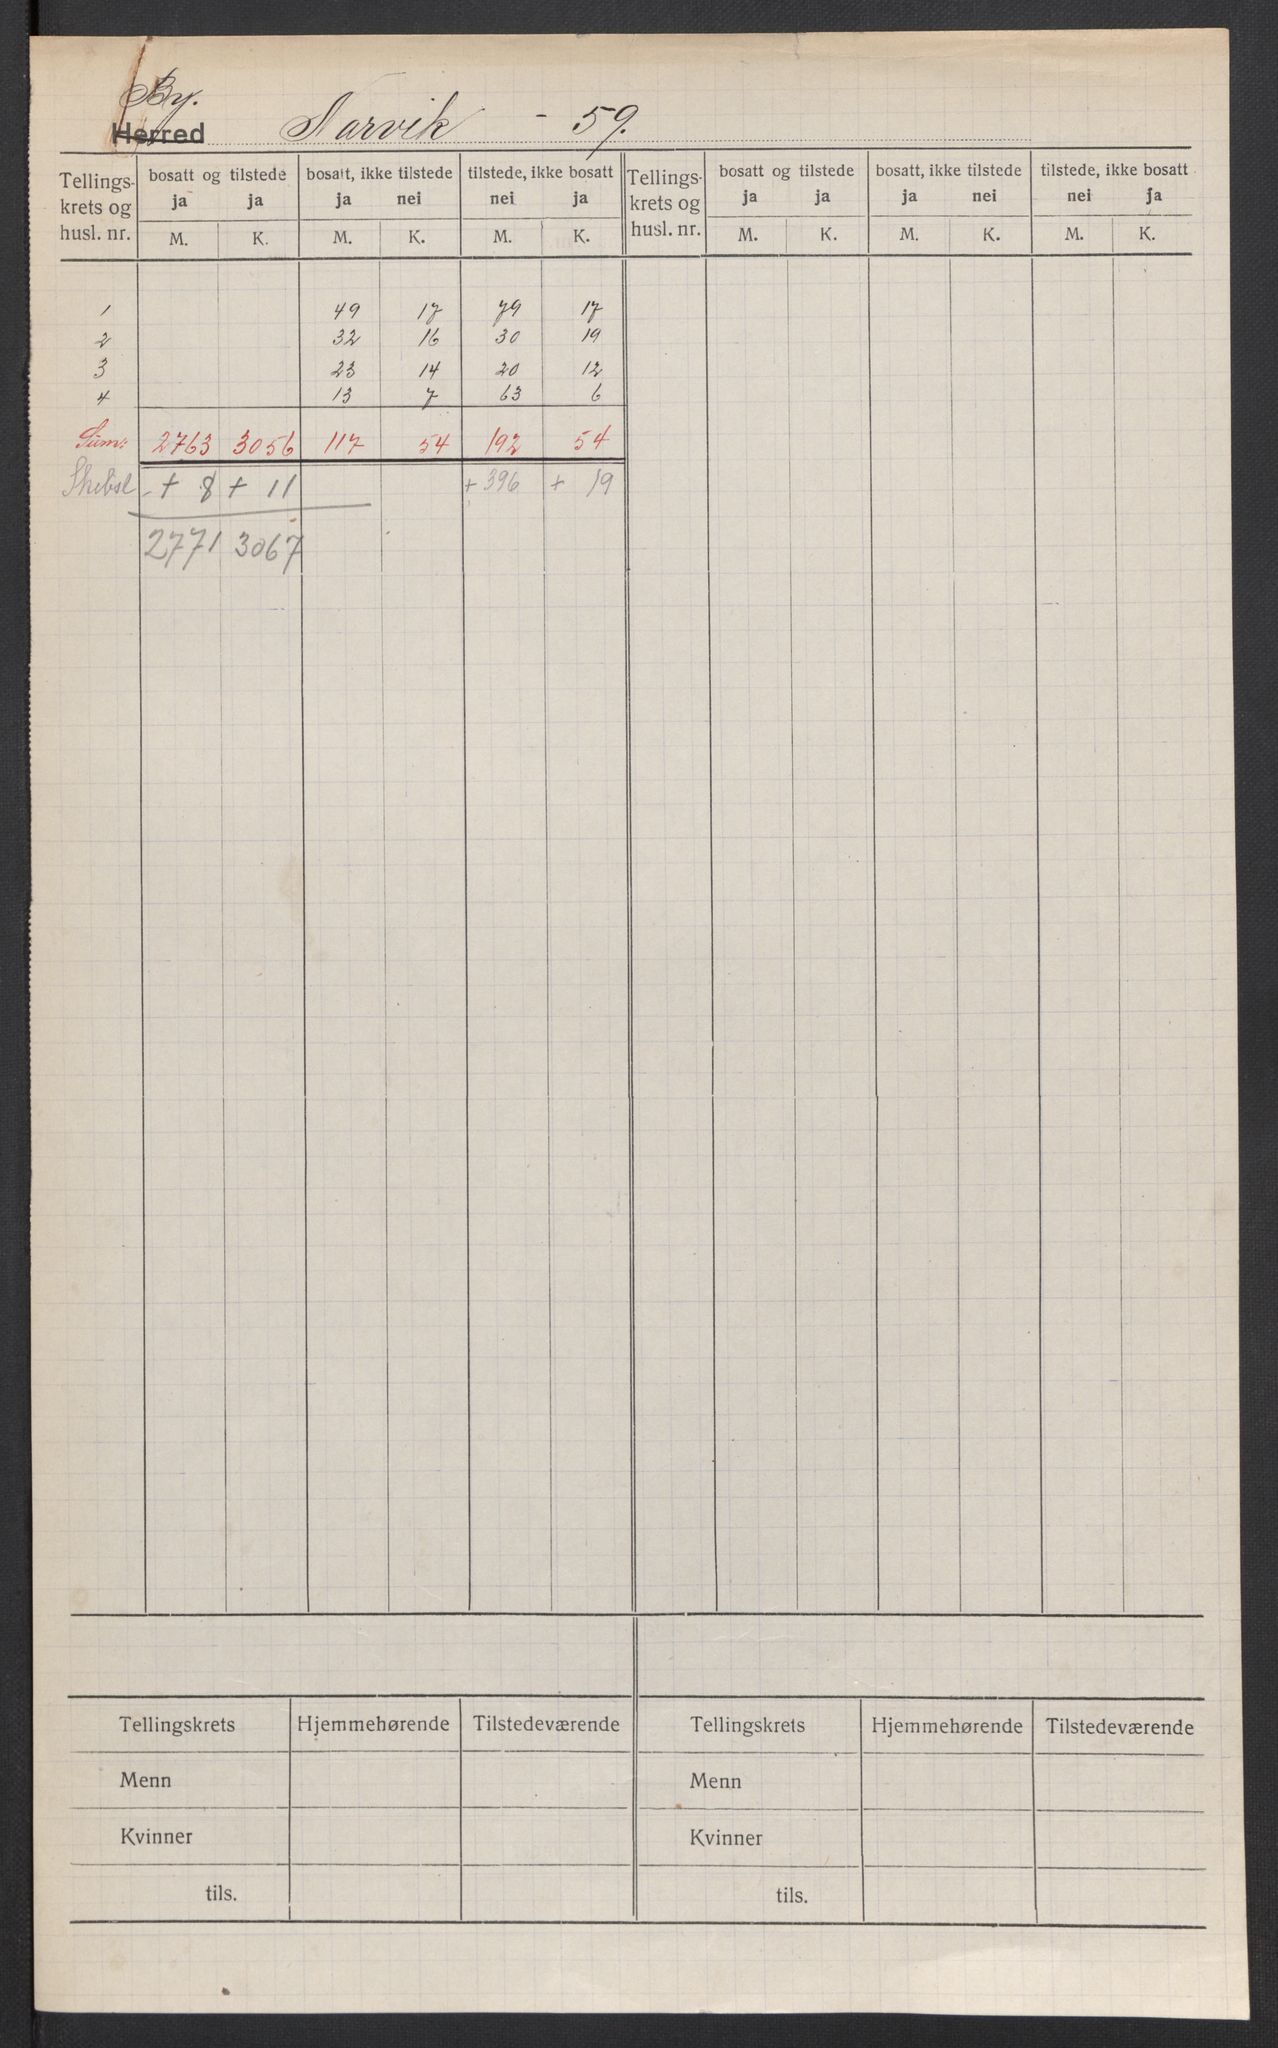 By.
Herred Narvik - 59.
Tellings- krets og husl. nr. bosatt og tilstede bosatt, ikke tilstede tilstede, ikke bosatt Tellings- krets og husl. nr. bosatt og tilstede bosatt, ikke tilstede tilstede, ikke bosatt
ja ja ja nei nei ja ja ja ja nei nei ja
M. K. M. K. M. K. M. K. M. K. M. K.
1 49 17 79 17
2 32 16 30 19
3 23 14 20 12
4 13 7 63 6
Sum: 2763 3056 117 54 192 54
+ 8 + 11 + 396 + 19
2771 3067
Tellingskrets Hjemmehørende Tilstedeværende Tellingskrets Hjemmehørende Tilstedeværende
Menn Menn
Kvinner Kvinner
tils. tils.